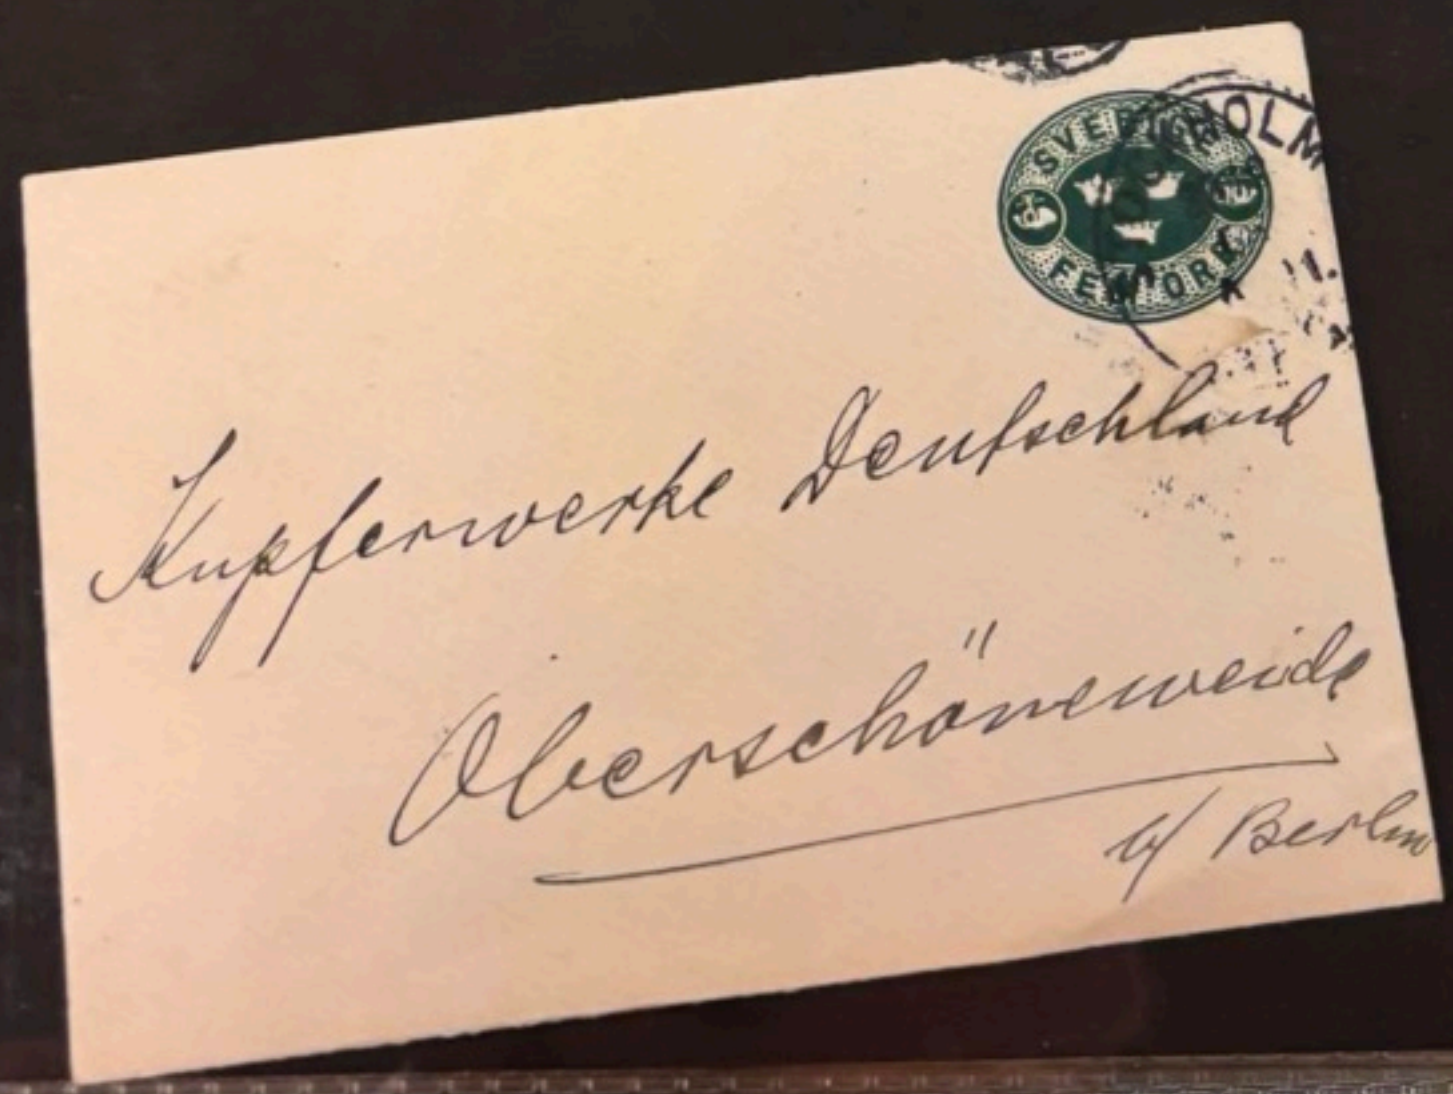 SVERIGE
FEM ÖRE
Kupferwerke Deutschland
Oberschöneweide
b/ Berlin